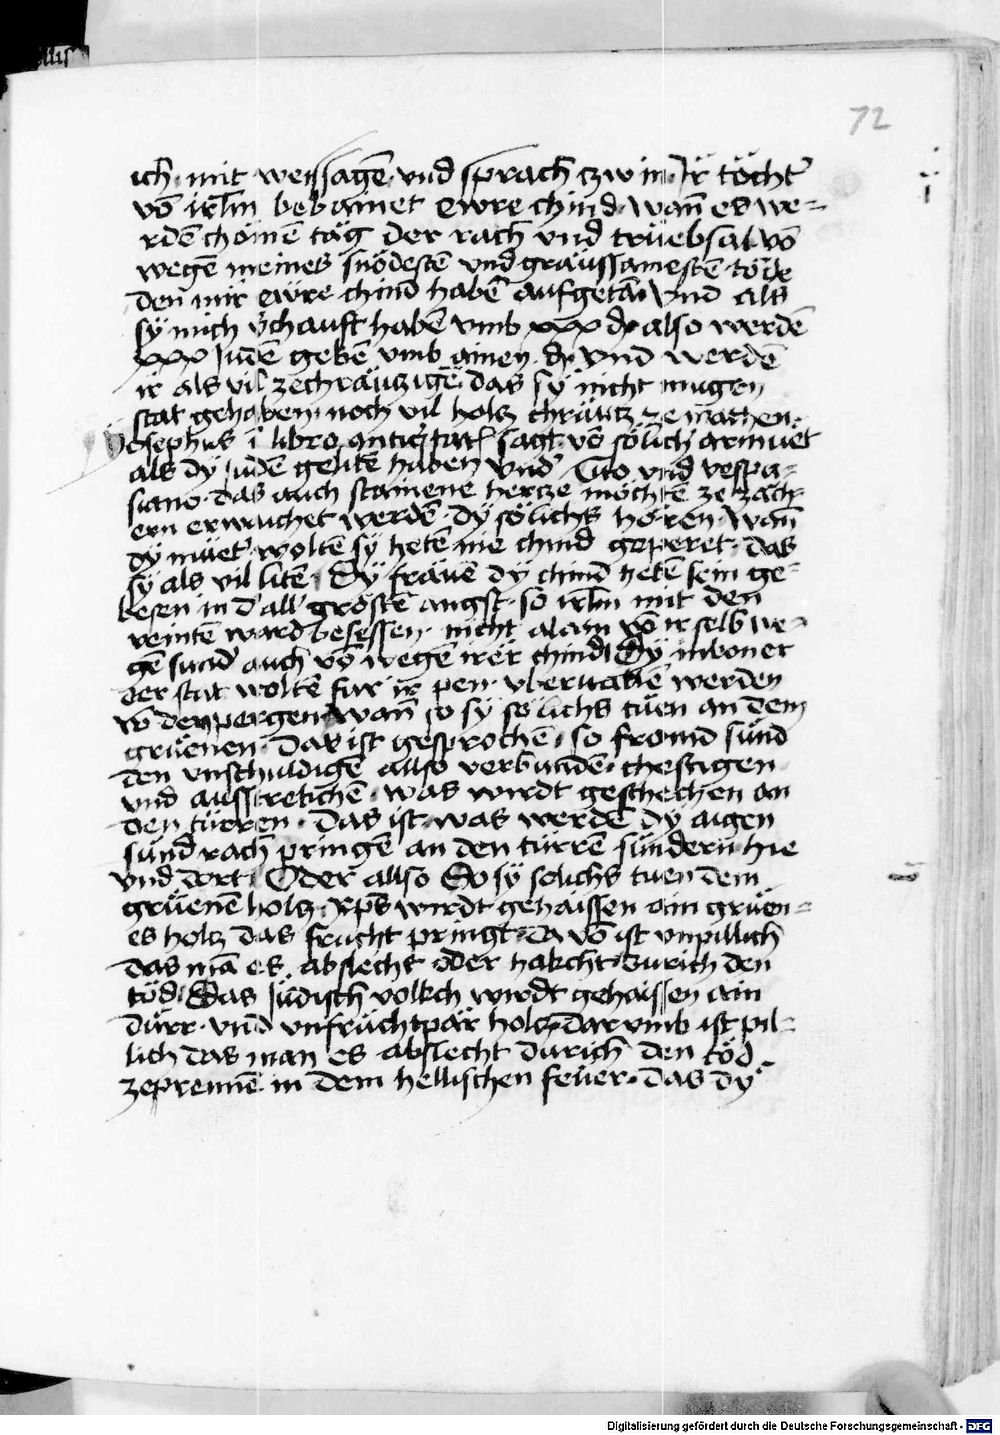 72
ich mit weissagē vnd sprach zw in Ir töcht'
vō irlm bebainet ewre chind wan̄ es we-
rdē chömē täg der rach vnd trüebsal vō
wegē meines snödestē vnd graussamestē töde
den mir ewre chind habē aufgetā Vnd als
sy mich v'chauft habē vmb xxx d also werdē
xxx Judē gebē vmb ainen d Vnd werdē
ir als vil zechräuczigē das sy nicht mugen
stat gehaben noch vil holcz chräutz ze machen
Josephus ī libro antiq'tat sagt vō sölich armuet
als dy Judē gelitē haben vnd' Tito vnd vespa-
siano das auch stainene hercze möchtē ze zäch-
ern erwaichet werdē dy sölichs hören Wan̄
dy müet' woltē sy hetē nie chind geperet das
sy als vil litē Dy frawē dy chind hetē sein ge-
besen in d' all' gröstē angst so irlm mit den
veintē ward besessen nicht alain vō ir selb we-
gē sund' auch vō wegē irer chind Dy inboner
der stat woltē fur ir pen vberuallē werden
vō den pergen wan̄ so sy solichs tuen an dem
grüenen Das ist gesprochē so fromd sünd
den vnschuldigē allso verbundē chestigen
vnd ausstretichē was wirdt geschechen an
den türren Das ist was werdē dy aigen
sünd rach pringē an den türrē sündern hie
vnd dort Oder allso So sy solichs tuen dem
grüenē holcz xps wirdt gehaissen ain grüen-
es holcz das frucht pringt da vō ist vnpillich
das mā es abslecht oder hakcht durich den
töd Das Jüdisch volkch wirdt gehaissen ain
dürr vnd vnfruchtpär holcz dar vmb ist pil-
lich das man es abslecht durich den töd
zeprennē in dem hellischen feuer das dy
Digitalisierung gefördert durch die Deutsche Forschungsgemeinschaft - DFG